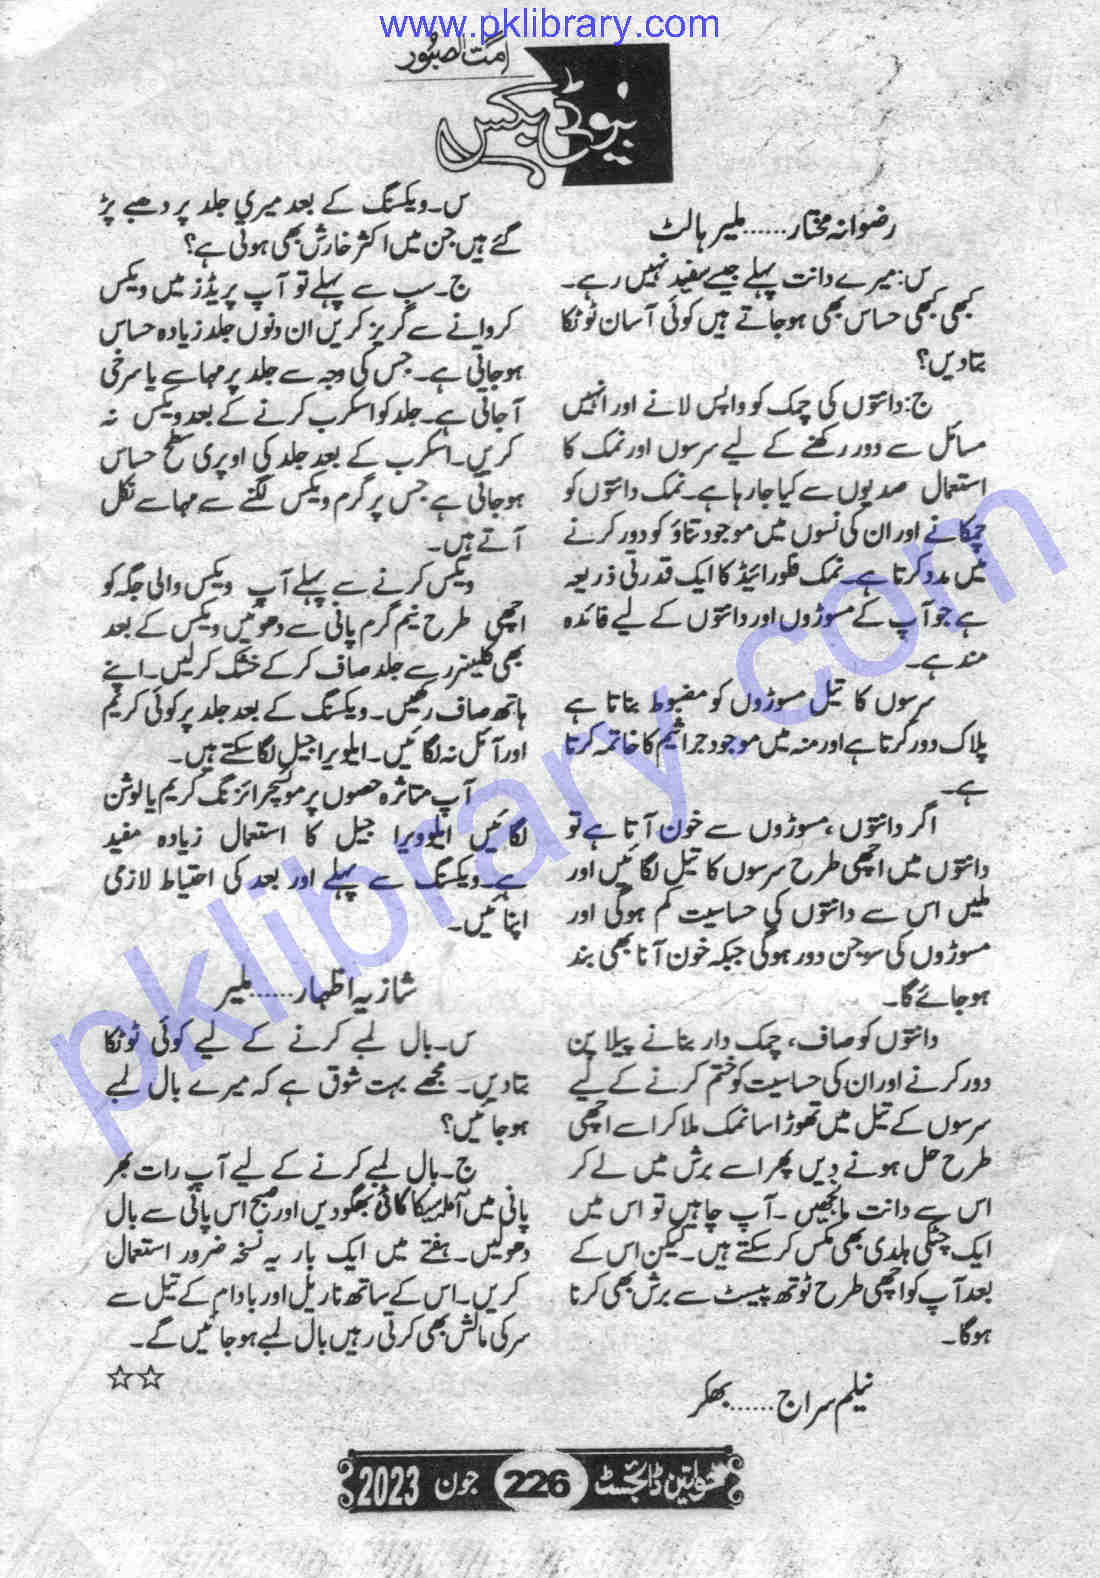 www.pklibrary.com
امت الصبور
بیوٹی بکس
رضوانہ مختار......ملیر ہالٹ
س: میرے دانت پہلے جیسے سفید نہیں رہے۔
کبھی کبھی حساس بھی ہوجاتے ہیں کوئی آسان ٹوٹکا
بتادیں؟
ج: دانتوں کی چمک کو واپس لانے اور انہیں
مسائل سے دور رکھنے کے لیے سرسوں اور نمک کا
استعمال صدیوں سے کیا جارہا ہے۔ نمک دانتوں کو
چمکانے اور ان کی نسوں میں موجود تناؤ کو دور کرنے
میں مدد کرتا ہے۔ نمک فلورائیڈ کا ایک قدرتی ذریعہ
ہے جو آپ کے مسوڑوں اور دانتوں کے لیے فائدہ
مند ہے۔
سرسوں کا تیل مسوڑوں کو مضبوط بناتا ہے
پلاک دور کرتا ہے اور منہ میں موجود جراثیم کا خاتمہ کرتا
ہے۔
اگر دانتوں، مسوڑوں سے خون آتا ہے تو
دانتوں میں اچھی طرح سرسوں کا تیل لگائیں اور
ملیں اس سے دانتوں کی حساسیت کم ہوگی اور
مسوڑوں کی سوجن دور ہوگی جبکہ خون آنا بھی بند
ہوجائے گا۔
دانتوں کو صاف، چمک دار بنانے پیلا پن
دور کرنے اور ان کی حساسیت کو ختم کرنے کے لیے
سرسوں کے تیل میں تھوڑا سا نمک ملا کر اسے اچھی
طرح حل ہونے دیں پھر اسے برش میں لے کر
اس سے دانت مانجھیں۔ آپ چاہیں تو اس میں
ایک چٹکی ہلدی بھی مکس کر سکتے ہیں۔ لیکن اس کے
بعد آپ کو اچھی طرح ٹوتھ پیسٹ سے برش بھی کرنا
ہوگا۔
نیلم سراج......بھکر
س۔ ویکسنگ کے بعد میری جلد پر دھبے پڑ
گئے ہیں جن میں اکثر خارش بھی ہوتی ہے؟
ج۔ سب سے پہلے تو آپ پریڈز میں ویکس
کروانے سے گریز کریں ان دنوں جلد زیادہ حساس
ہوجاتی ہے۔ جس کی وجہ سے جلد پر مہاسے یا سرخی
آجاتی ہے۔ جلد کو اسکرب کرنے کے بعد ویکس نہ
کریں۔ اسکرب کے بعد جلد کی اوپری سطح حساس
ہوجاتی ہے جس پر گرم ویکس لگنے سے مہاسے نکل
آتے ہیں۔
ویکس کرنے سے پہلے آپ ویکس والی جگہ کو
اچھی طرح نیم گرم پانی سے دھوئیں ویکس کے بعد
بھی کلینزر سے جلد صاف کرکے خشک کرلیں۔ اپنے
ہاتھ صاف رکھیں۔ ویکسنگ کے بعد جلد پر کوئی کریم
اور آئل نہ لگائیں۔ ایلویرا جیل لگا سکتے ہیں۔
آپ متاثرہ حصوں پر موئسچرائزنگ کریم یا لوشن
لگائیں ایلوویرا جیل کا استعمال زیادہ مفید
ہے۔ ویکسنگ سے پہلے اور بعد کی احتیاط لازمی
اپنائیں۔
شازیہ اظہار......ملیر
س۔ بال لمبے کرنے کے لیے کوئی ٹوٹکا
بتادیں۔ مجھے بہت شوق ہے کہ میرے بال لمبے
ہوجائیں؟
ج۔ بال لمبے کرنے کے لیے آپ رات بھر
پانی میں آملہ سیکا کائی بھگو دیں اور صبح اس پانی سے بال
دھولیں۔ ہفتے میں ایک بار یہ نسخہ ضرور استعمال
کریں۔ اس کے ساتھ ناریل اور بادام کے تیل سے
سر کی مالش بھی کرتی رہیں بال لمبے ہوجائیں گے۔
☆☆
خواتین ڈائجسٹ 226 جون 2023
pklibrary.com